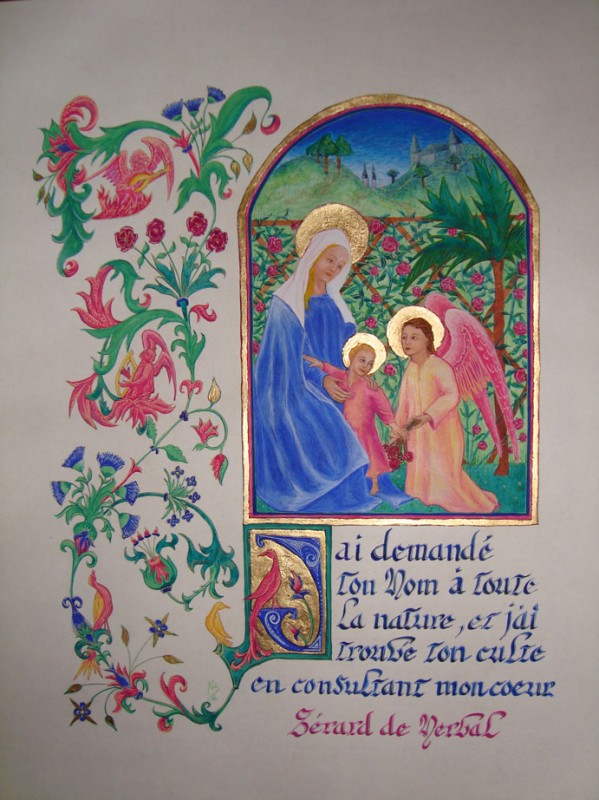 Jai demandé
ton Nom à toute
la nature, et j'ai
trouvé ton culte
en consultant mon coeur
Gérard de Nerval